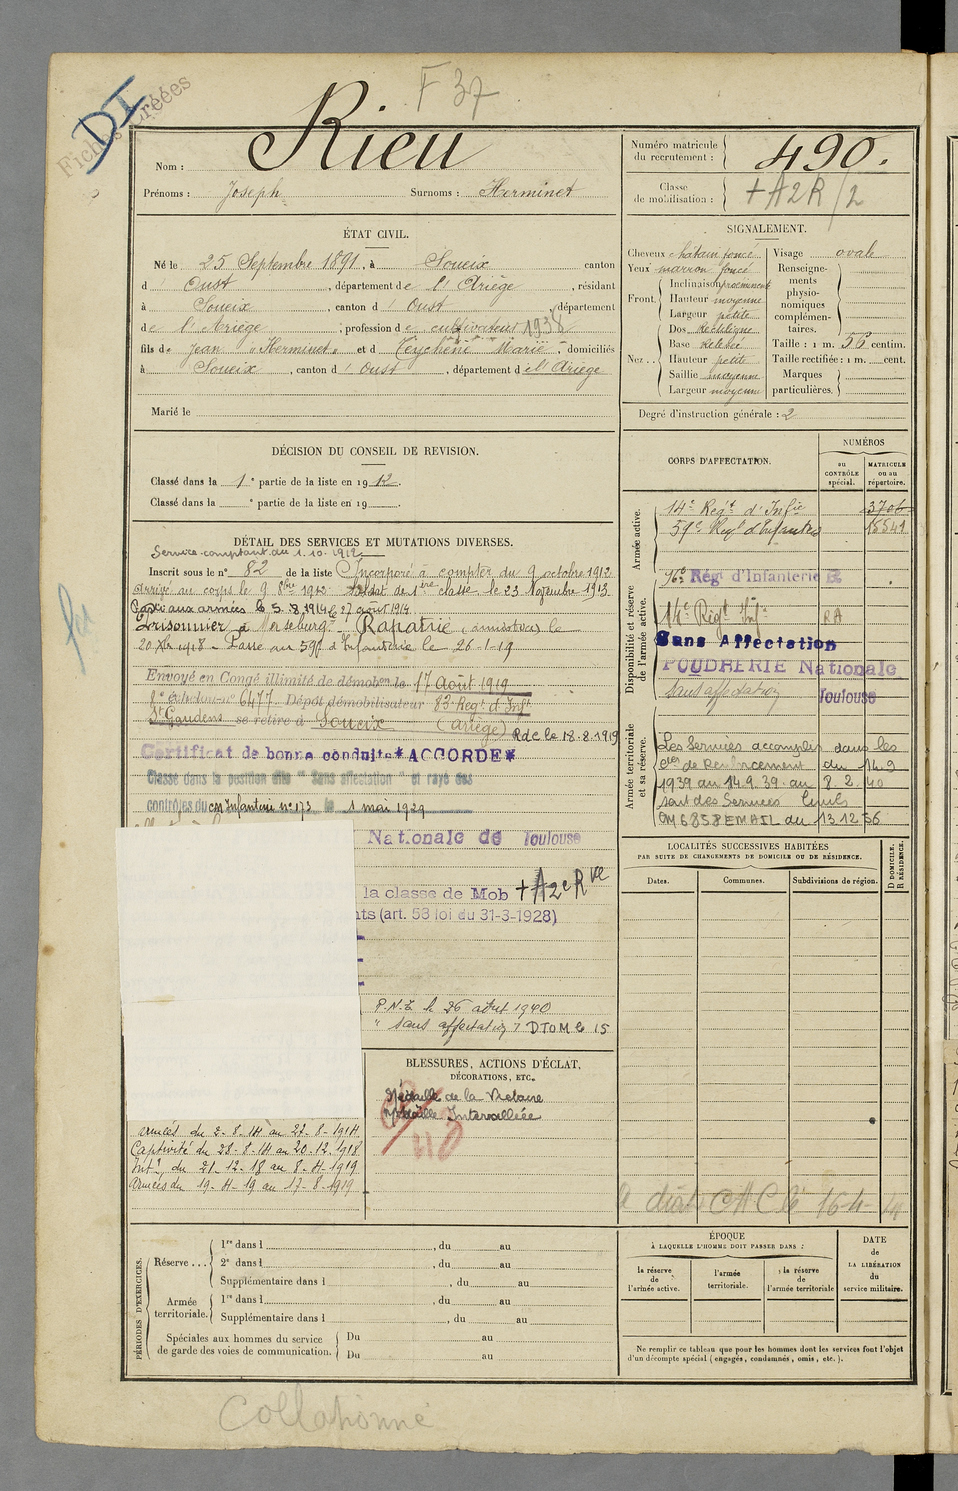 F 37
Fiches Créées
DI
Nom : Rieu
Prénoms : Joseph Surnoms : Herminet
Numéro matricule du recrutement : 490.
Classe de mobilisation : + A2R/2
ÉTAT CIVIL.
Né le 25 Septembre 1891, à Soueix canton
d' Oust, département de l'Ariège, résidant
à Soueix, canton d' Oust, département
de l'Ariège ; profession de cultivateur 1938
fils de Jean "Herminet" et d Teychené Marie, domiciliés
à Soueix, canton d' Oust, département de l'Ariège
Marié le
SIGNALEMENT.
Cheveux châtain foncé
Yeux marron foncé
Front. Inclinaison proéminent
Hauteur moyenne
Largeur petite
Nez.. Dos rectiligne
Base relevée
Hauteur petite
Saillie moyenne
Largeur moyenne
Visage ovale
Renseignements physionomiques complémentaires.
Taille : 1 m. 56 centim.
Taille rectifiée : 1 m. cent.
Marques particulières.
Degré d'instruction générale : 2
DÉCISION DU CONSEIL DE REVISION.
Classé dans la 1e partie de la liste en 1912.
Classé dans la e partie de la liste en 19 .
DÉTAIL DES SERVICES ET MUTATIONS DIVERSES.
Service comptant du 1.10.1912
Inscrit sous le n° 82 de la liste Incorporé à compter du 9 octobre 1912
Arrivé au corps le 9 8bre 1912 Soldat de 1ère classe le 23 Novembre 1913
Parti aux armées le 5.8.1914 le 27 août 1914
Prisonnier à Merseburg. Rapatrié (armistice) le
20 Xbre 1918 - Passé au 59e d'Infanterie le 26-1-19
Envoyé en Congé illimité de démobon le 17 Août 1919
échelon n° 6477 Dépôt démobilisateur 83 Regt d'Inft
St Gaudens se retire à Soueix (Ariège) Rdc le 18.8.1919
Certificat de bonne conduite *ACCORDÉ*
Classé dans la position dite "Sans affectation" et rayé des
contrôles du CM Infanterie n° 173 le 1 mai 1929
Nationale de Toulouse
la classe de Mob + A2eRve
nts (art. 58 loi du 31-3-1928)
P.N.T. le 26 août 1940
" sans affectation DTOM le 15
CORPS D'AFFECTATION.
NUMÉROS
au CONTRÔLE spécial.
MATRICULE ou au répertoire.
Armée active.
14e Regt d'Infie 3706
59e Regt d'Infanterie 15541
Disponibilité et réserve de l'armée active.
Régt d'Infanterie
14e Régt Inf. RA
Sans Affectation
POUDRERIE Nationale
Toulouse
Sans affectation
Armée territoriale et sa réserve.
Les Services accomplis dans les
Cies de Renforcement du 14.9
1939 au 14.9.39. au 8.2.40
sont des Services Civils
CM 6858 EMAIL du 13 12 56
LOCALITÉS SUCCESSIVES HABITÉES
PAR SUITE DE CHANGEMENTS DE DOMICILE OU DE RÉSIDENCE.
Dates. Communes. Subdivisions de région. D DOMICILE. R RÉSIDENCE.
BLESSURES, ACTIONS D'ÉCLAT,
DÉCORATIONS, ETC.
Médaille de la Victoire
Médaille Interalliée
Armées du 2-8-14 au 27-8-1914
Captivité du 28-8-14 au 20.12.1918
Intr du 21-12-18 au 8-4-1919
Armées du 19-4-19 au 17-8-1919
CAC le 16-4-41
PÉRIODES D'EXERCICES.
Réserve... 1re dans l , du au
2e dans l , du au
Supplémentaire dans l , du au
Armée territoriale. 1re dans l , du au
Supplémentaire dans l , du au
Spéciales aux hommes du service de garde des voies de communication. Du au
Du au
ÉPOQUE
À LAQUELLE L'HOMME DOIT PASSER DANS :
la réserve de l'armée active.
l'armée territoriale.
la réserve de l'armée territoriale
DATE de LA LIBÉRATION du service militaire.
Ne remplir ce tableau que pour les hommes dont les services font l'objet
d'un décompte spécial (engagés, condamnés, omis, etc.).
Collationné